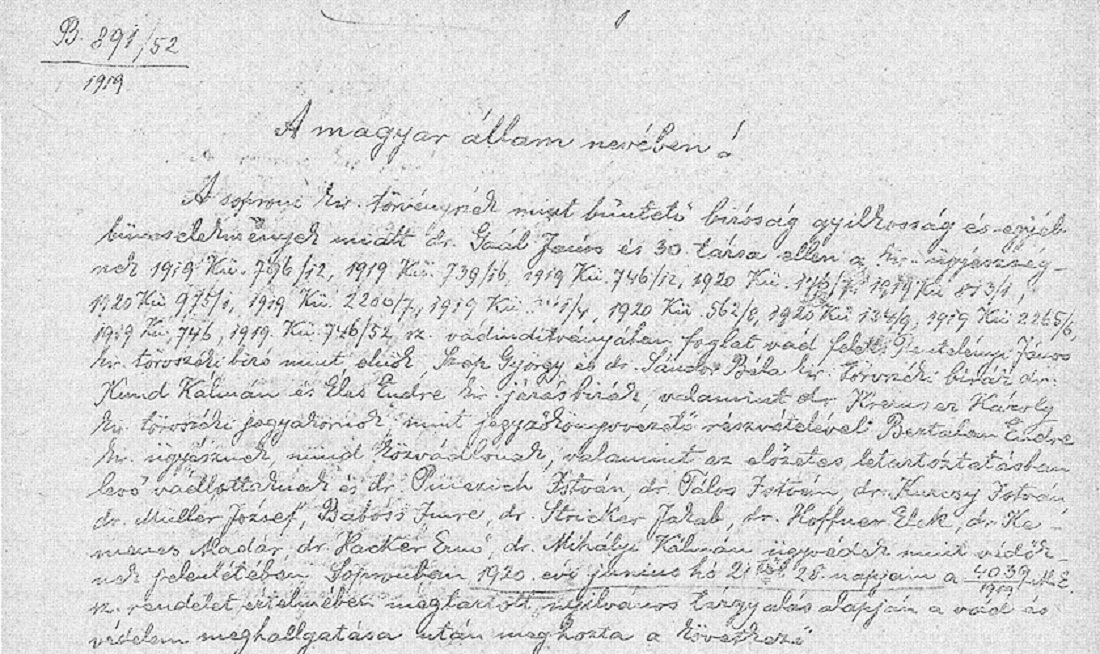 B. 891/52
1919
A magyar állam nevében!
A soproni kir. törvényszék mint büntető biróság gyilkosság és egyéb
büncselekmények miatt dr. Gaál János és 30. társa ellen a kir. ügyészség-
nek 1919 Kü. 796/12, 1919 Kü. 739/16, 1919 Kü. 746/12, 1920 Kü. 1919 Kü 813/1,
1920 Kü 975/1, 1919 Kü. 2200/7, 1919 Kü. 1920 Kü. 562/8, 1920 Kü 134/9, 1919 Kü 2265/6,
1919 Kü. 746, 1919. Kü. 746/52 sz. vádinditványában foglalt vád felett Pentelényi János
kir. törvszéki biró mint elnök, György és dr. Sándor Béla kir. törvszéki birák dr.
Kund Kálmán és Éles Endre kir. járásbirák, valamint dr. Károly
kir. törvszéki jegyzőnek mint jegyzőkönyvvezető részvételével Bertalan Endre
kir. ügyésznek mind közvádlónak, valamint az előzetes letartóztatásban
levő vádlottaknak és dr. Pinezich István, dr. Tálos István, dr. Kurcsy István
dr. Müller József, Babóss Imre, dr. Stricker Jakab, dr. Hoffner Elek, dr. Ke-
menes Aladár, dr. Hacker Ernő, dr. Mihályi Kálmán ügyvédek mint védők-
nek jelenlétében Sopronban 1920. évi junius hó 21 28. napjain a 4039/1919 M.E.
sz. rendelet értelmében megtartott nyilvános tárgyalás alapján a vád és
védelem meghallgatása után meghozta a következő